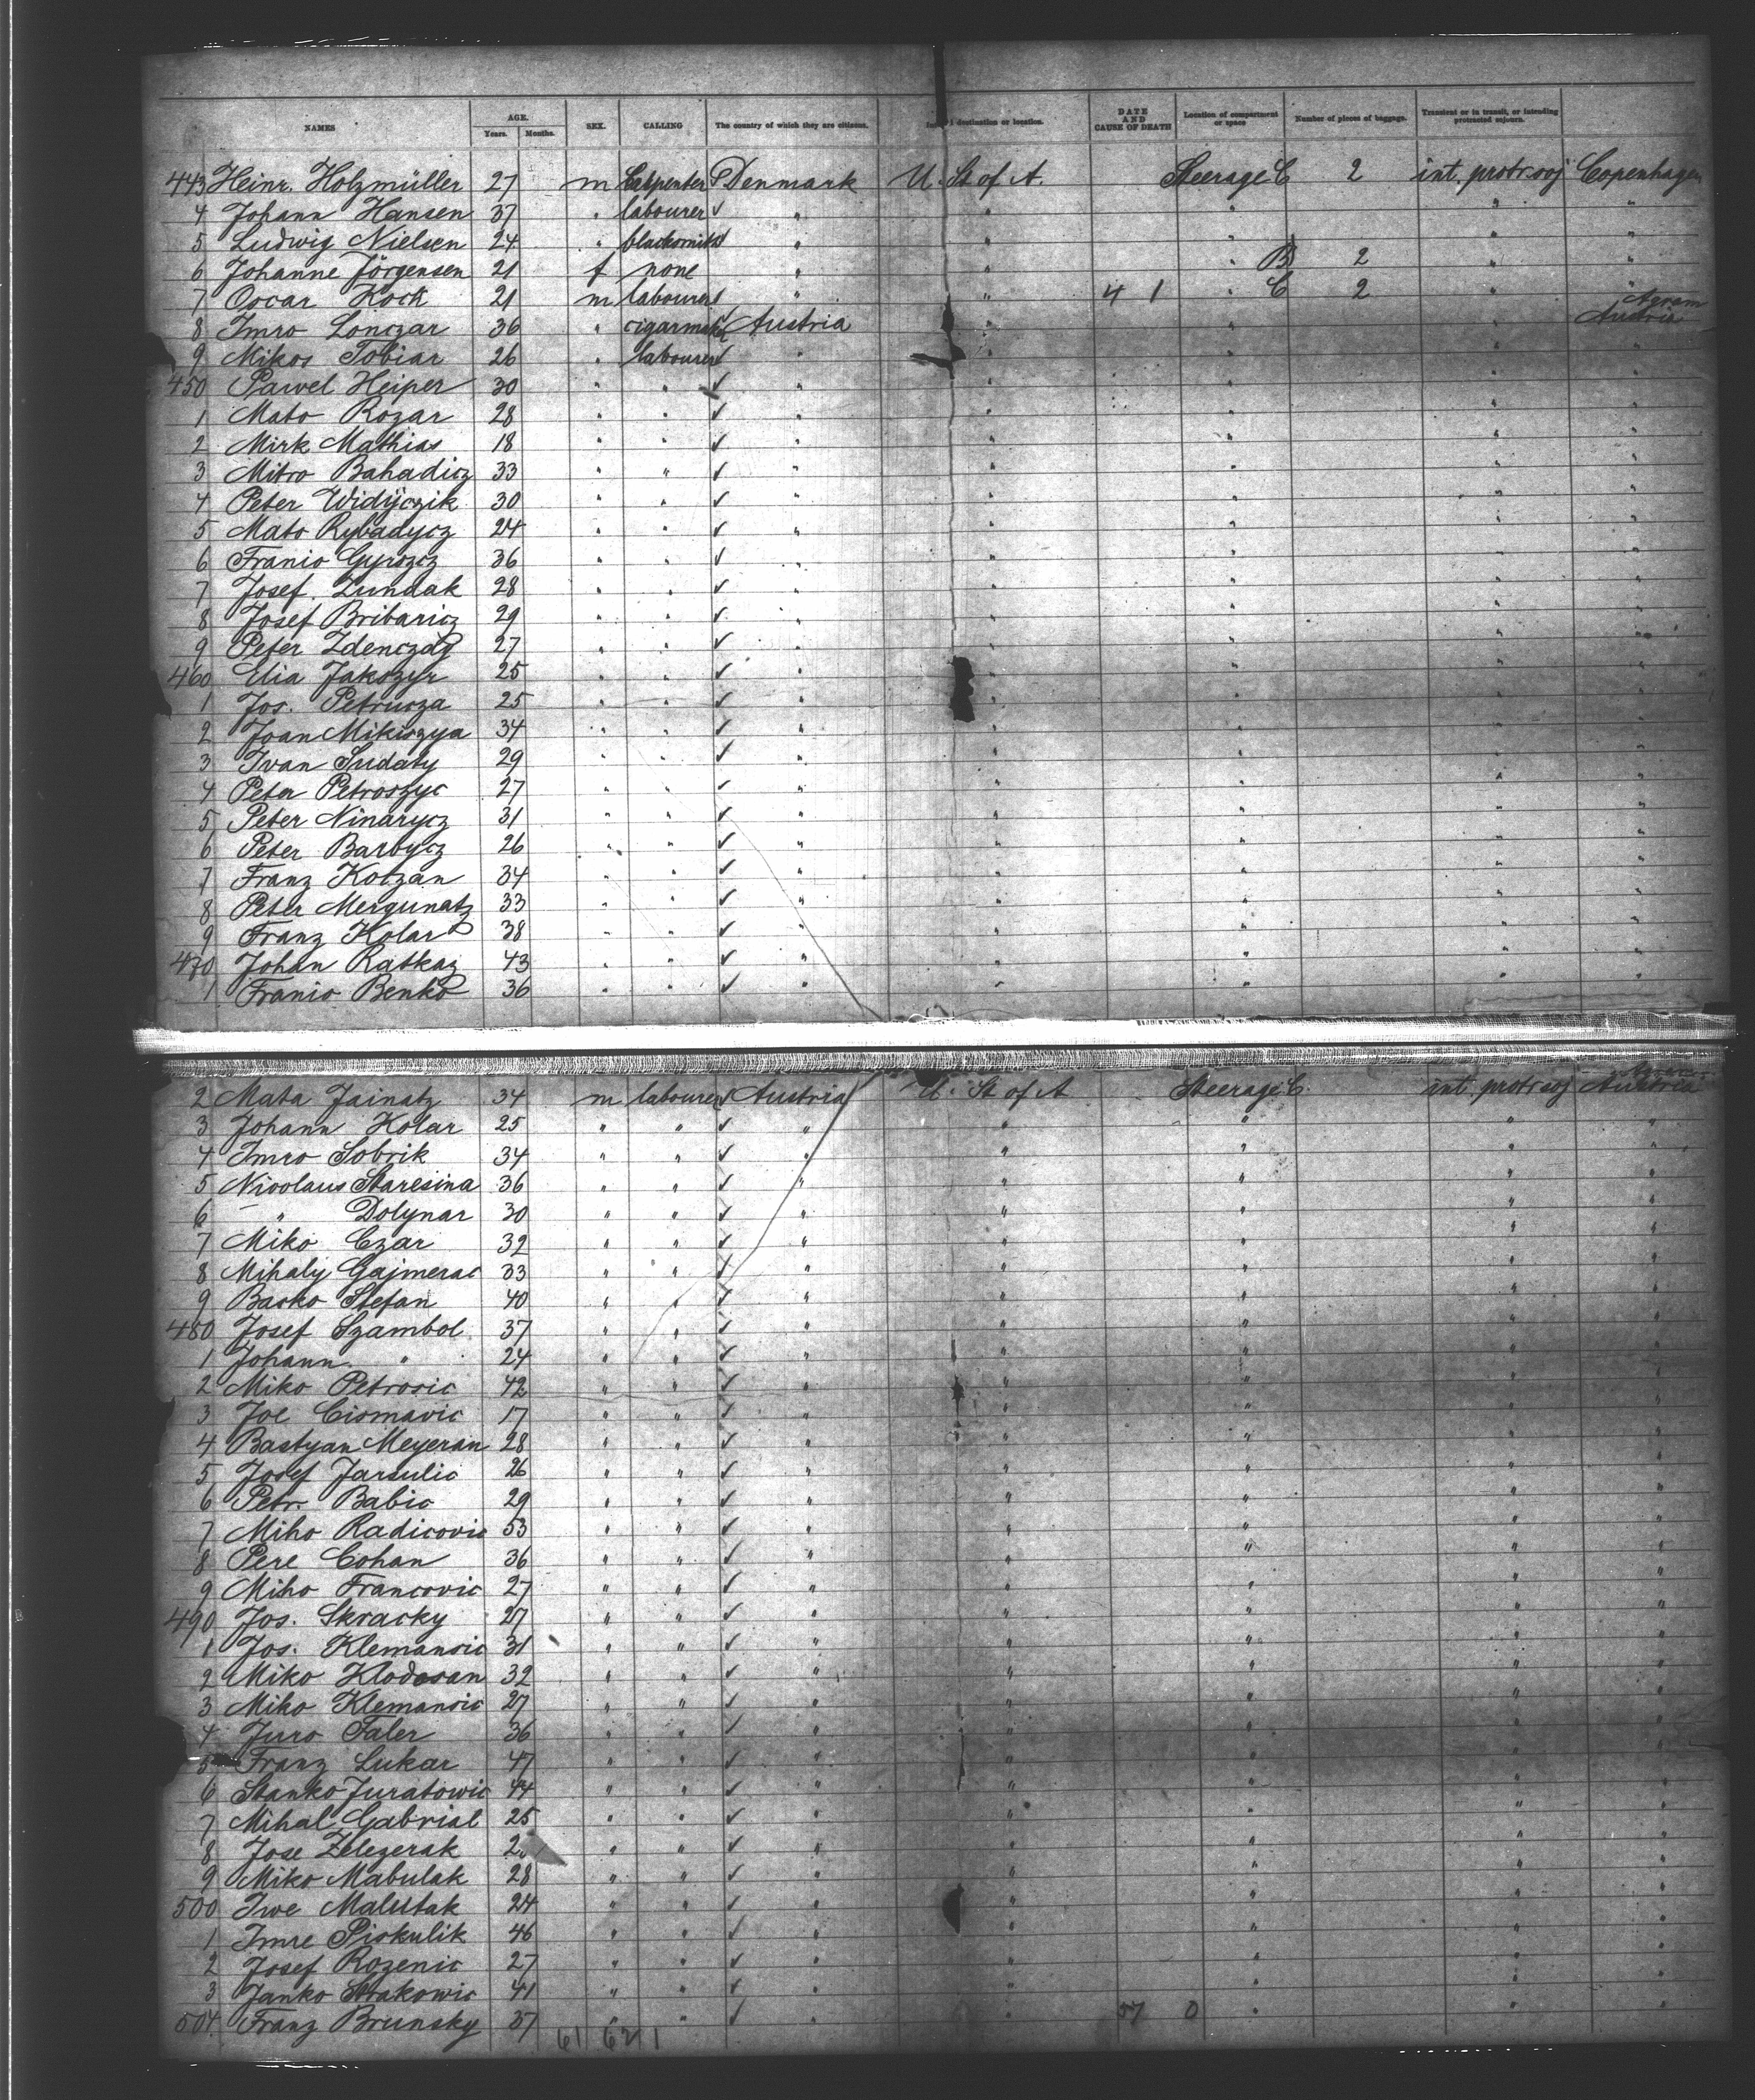 NAMES AGE. Years. Months. SEX. CALLING The country of which they are citizens. destination or location. DATE AND CAUSE OF DEATH Location of compartment or space Number of pieces of baggage. Transient or in transit, or intending protracted sojourn.
443 Heinr. Holzmüller 27 m Carpenter Denmark U. St of A. Steerage C 2 int. protr. soj Copenhagen
4 Johann Hansen 37 " labourer " " " " "
5 Ludwig Nielsen 24 " blacksmith " " " " "
6 Johanne Jörgensen 21 f none " " " B 2 " "
7 Oscar Koch 21 m labourer " " 4 1 " C 2 " "
8 Imro Lonczar 36 " cigarmaker Austria " " " Agram Austria
9 Mikos Tobiar 26 " labourer " " " " "
450 Pawel Heiper 30 " " " " " " "
1 Mato Rozar 28 " " " " " " "
2 Mirk Mathias 18 " " " " " " "
3 Mitro Bahadicz 33 " " " " " " "
4 Peter Widijczik 30 " " " " " " "
5 Mato Rybadycz 24 " " " " " " "
6 Franio Gyrszcz 36 " " " " " " "
7 Josef. Zundak 28 " " " " " " "
8 Josef Bribaricz 29 " " " " " " "
9 Peter Zdenczag 27 " " " " " " "
460 Elia Jakszyr 25 " " " " " " "
1 Jos. Petrucza 25 " " " " " " "
2 Joan Mikiszya 34 " " " " " " "
3 Ivan Sudaty 29 " " " " " " "
4 Peter Petroszyc 27 " " " " " " "
5 Peter Ninarycz 31 " " " " " " "
6 Peter Barbycz 26 " " " " " " "
7 Franz Kotzan 34 " " " " " " "
8 Peter Mergunatz 33 " " " " " " "
9 Franz Kolar 38 " " " " " " "
470 Johan Ratkaz 43 " " " " " " "
1 Franio Benko 36 " " " " " " "
2 Mata Jainatz 34 m labourer Austria U. St of A Steerage C. int. protr. soj Agram Austria
3 Johann Kolar 25 " " " " " " "
4 Imro Sobrik 34 " " " " " " "
5 Nicolaus Staresina 36 " " " " " " "
6 " Dolynar 30 " " " " " " "
7 Miko Czar 32 " " " " " " "
8 Mihaly Gajmerac 33 " " " " " " "
9 Backo Stefan 40 " " " " " " "
480 Josef Szambol 37 " " " " " " "
1 Johann " 24 " " " " " " "
2 Miko Petrosic 42 " " " " " " "
3 Joe Cismavic 17 " " " " " " "
4 Bastyan Meyeran 28 " " " " " " "
5 Josef Jarsulic 26 " " " " " " "
6 Petr. Babic 29 " " " " " " "
7 Miho Radicovic 53 " " " " " " "
8 Pere Cohan 36 " " " " " " "
9 Miho Francovic 27 " " " " " " "
490 Jos. Skracky 27 " " " " " " "
1 Jos. Klemansic 31 " " " " " " "
2 Miko Klodosan 32 " " " " " " "
3 Miko Klemansic 27 " " " " " " "
4 Juro Faler 36 " " " " " " "
5 Franz Lukar 47 " " " " " " "
6 Stanko Juratowic 44 " " " " " " "
7 Mihal Gabrial 25 " " " " " " "
8 Jose Zelezerak " " " " " " "
9 Miko Mabulak 28 " " " " " " "
500 Iwe Malestak 24 " " " " " " "
1 Imre Piskulik 46 " " " " " " "
2 Josef Rozenic 27 " " " " " " "
3 Janko Strakowic 41 " " " " " " "
504 Franz Brunsky 37 " " " " 57 0 " " "
61 62 1